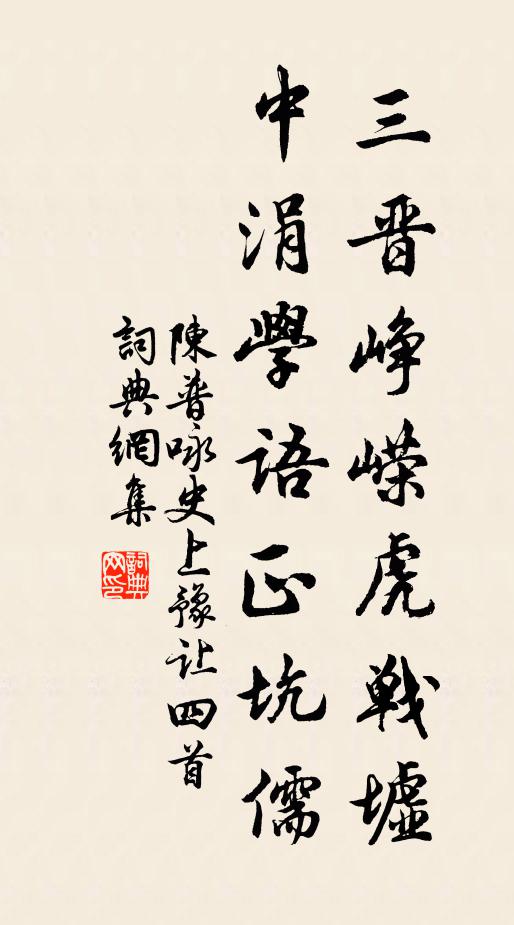 三晋峥嵘虎戰墟
中涓學語正坑儒
陳普咏史上豫让四首
詞典網集
詞典网印